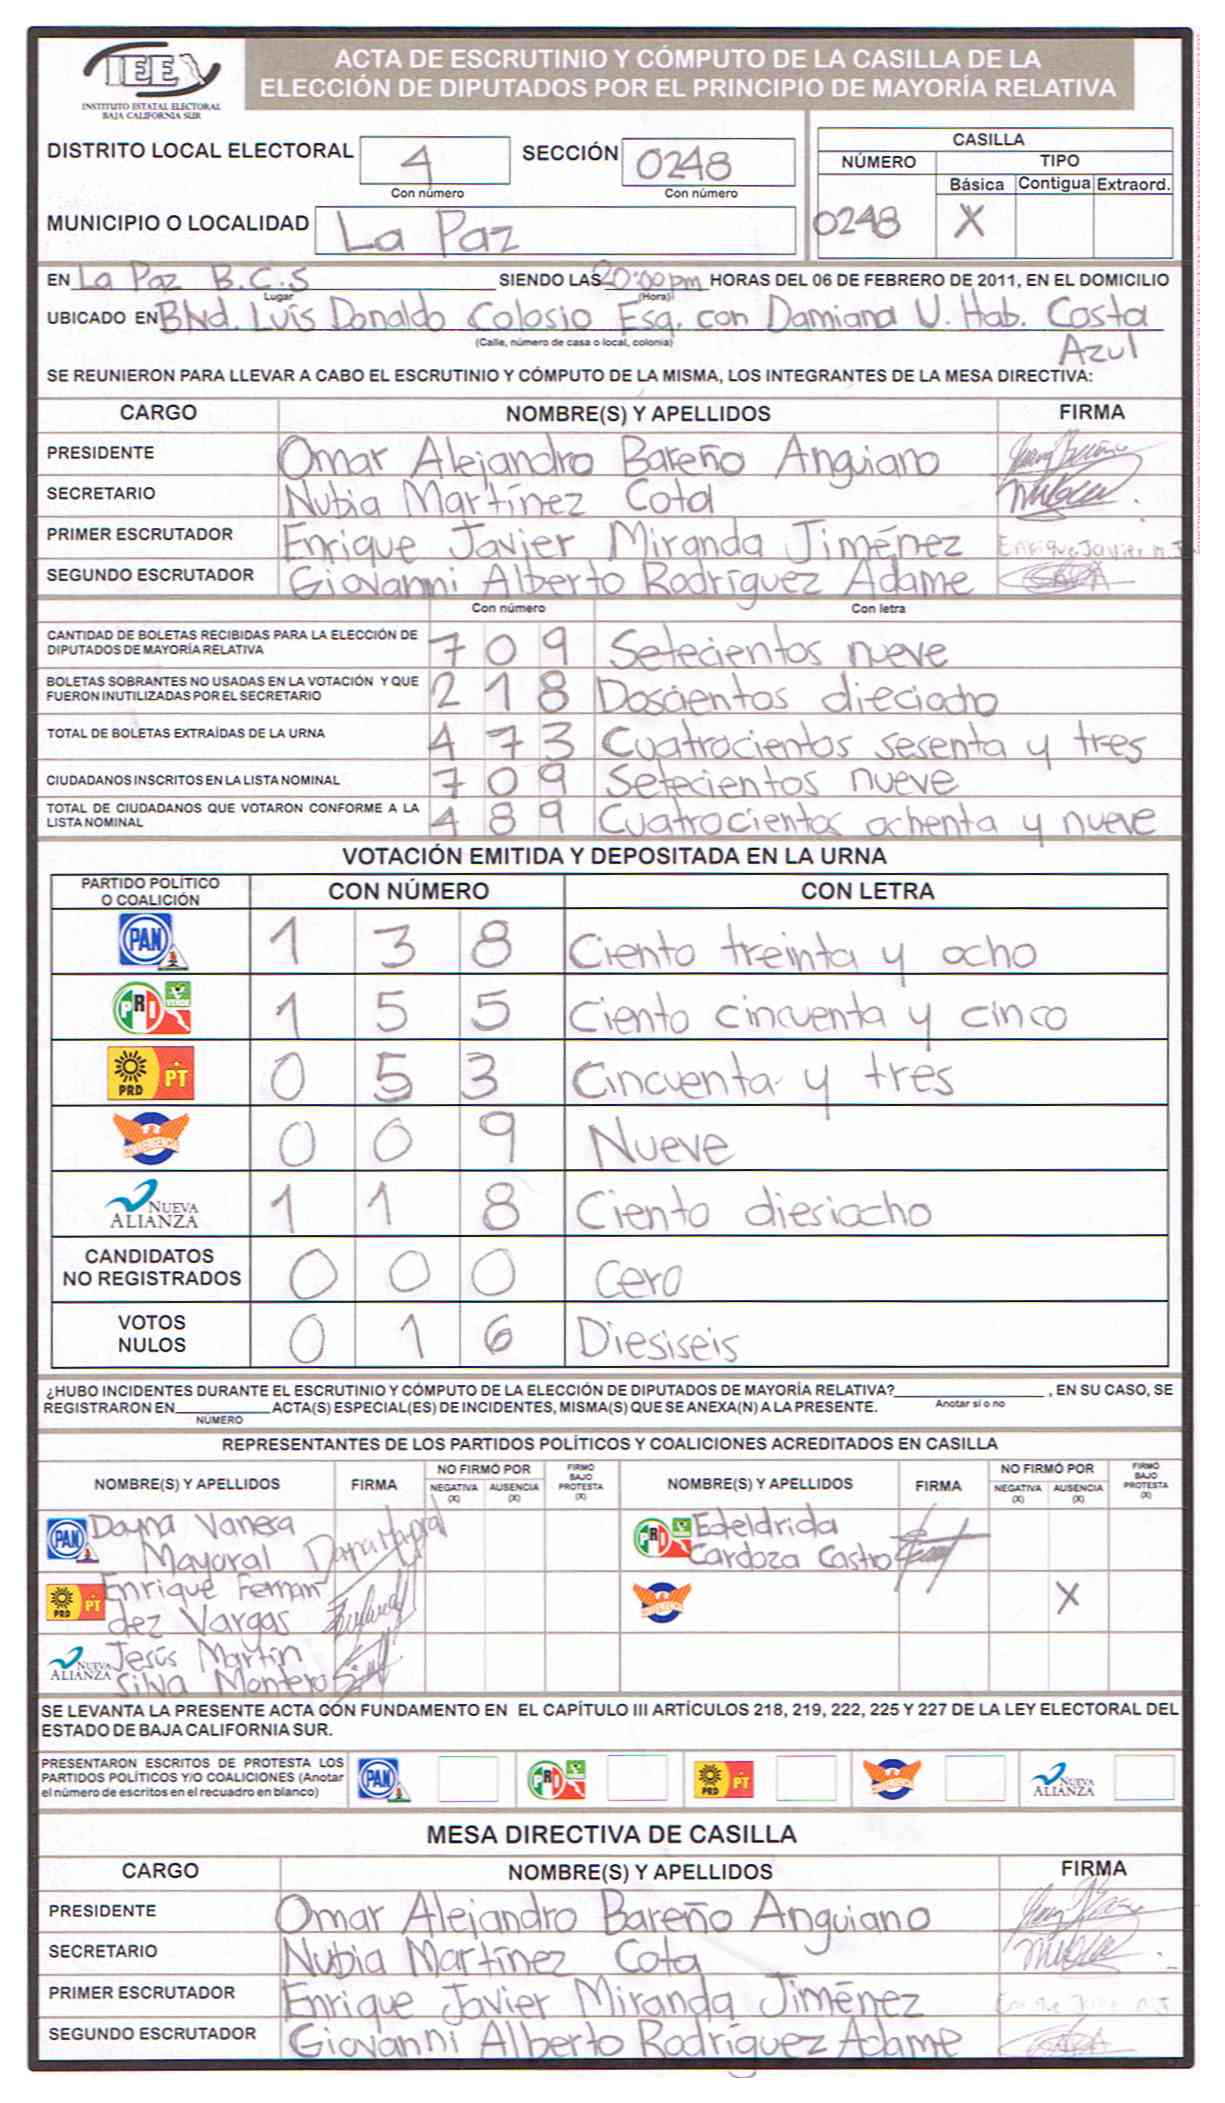 IEE
INSTITUTO ESTATAL ELECTORAL
BAJA CALIFORNIA SUR
ACTA DE ESCRUTINIO Y CÓMPUTO DE LA CASILLA DE LA
ELECCIÓN DE DIPUTADOS POR EL PRINCIPIO DE MAYORÍA RELATIVA
DISTRITO LOCAL ELECTORAL 4 SECCIÓN 0248
Con número Con número
MUNICIPIO O LOCALIDAD La Paz
CASILLA
NÚMERO TIPO
Básica Contigua Extraord.
0248 X
EN La Paz B.C.S SIENDO LAS 20:00 pm HORAS DEL 06 DE FEBRERO DE 2011, EN EL DOMICILIO
Lugar (Hora)
UBICADO EN Blvd. Luis Donaldo Colosio Esq. con Damiana U. Hab. Costa
(Calle, número de casa o local, colonia) Azul
SE REUNIERON PARA LLEVAR A CABO EL ESCRUTINIO Y CÓMPUTO DE LA MISMA, LOS INTEGRANTES DE LA MESA DIRECTIVA:
CARGO NOMBRE(S) Y APELLIDOS FIRMA
PRESIDENTE Omar Alejandro Bareño Anguiano
SECRETARIO Nubia Martínez Cota
PRIMER ESCRUTADOR Enrique Javier Miranda Jiménez Enrique Javier M. J.
SEGUNDO ESCRUTADOR Giovanni Alberto Rodríguez Adame
Con número Con letra
CANTIDAD DE BOLETAS RECIBIDAS PARA LA ELECCIÓN DE
DIPUTADOS DE MAYORÍA RELATIVA 7 0 9 Setecientos nueve
BOLETAS SOBRANTES NO USADAS EN LA VOTACIÓN Y QUE
FUERON INUTILIZADAS POR EL SECRETARIO 2 1 8 Doscientos dieciocho
TOTAL DE BOLETAS EXTRAÍDAS DE LA URNA 4 7 3 Cuatrocientos sesenta y tres
CIUDADANOS INSCRITOS EN LA LISTA NOMINAL 7 0 9 Setecientos nueve
TOTAL DE CIUDADANOS QUE VOTARON CONFORME A LA
LISTA NOMINAL 4 8 9 Cuatrocientos ochenta y nueve
VOTACIÓN EMITIDA Y DEPOSITADA EN LA URNA
PARTIDO POLÍTICO
O COALICIÓN CON NÚMERO CON LETRA
PAN 1 3 8 Ciento treinta y ocho
PRI VERDE 1 5 5 Ciento cincuenta y cinco
PRD PT 0 5 3 Cincuenta y tres
CONVERGENCIA 0 0 9 Nueve
NUEVA ALIANZA 1 1 8 Ciento diesiocho
CANDIDATOS
NO REGISTRADOS 0 0 0 Cero
VOTOS
NULOS 0 1 6 Diesiseis
¿HUBO INCIDENTES DURANTE EL ESCRUTINIO Y CÓMPUTO DE LA ELECCIÓN DE DIPUTADOS DE MAYORÍA RELATIVA? , EN SU CASO, SE
Anotar si o no
REGISTRARON EN ACTA(S) ESPECIAL(ES) DE INCIDENTES, MISMA(S) QUE SE ANEXA(N) A LA PRESENTE.
NÚMERO
REPRESENTANTES DE LOS PARTIDOS POLÍTICOS Y COALICIONES ACREDITADOS EN CASILLA
NOMBRE(S) Y APELLIDOS FIRMA NO FIRMÓ POR NEGATIVA (X) AUSENCIA (X) FIRMÓ BAJO PROTESTA (X) NOMBRE(S) Y APELLIDOS FIRMA NO FIRMÓ POR NEGATIVA (X) AUSENCIA (X) FIRMÓ BAJO PROTESTA (X)
PAN Dayna Vanesa
Mayoral
PRI VERDE Edeldrida
Cardoza Castro
PRD PT Enrique Fernan
dez Vargas
CONVERGENCIA X
NUEVA ALIANZA Jesús Martín
Silva Montero
SE LEVANTA LA PRESENTE ACTA CON FUNDAMENTO EN EL CAPÍTULO III ARTÍCULOS 218, 219, 222, 225 Y 227 DE LA LEY ELECTORAL DEL
ESTADO DE BAJA CALIFORNIA SUR.
PRESENTARON ESCRITOS DE PROTESTA LOS
PARTIDOS POLÍTICOS Y/O COALICIONES (Anotar
el número de escritos en el recuadro en blanco)
PAN PRI VERDE PRD PT CONVERGENCIA NUEVA ALIANZA
MESA DIRECTIVA DE CASILLA
CARGO NOMBRE(S) Y APELLIDOS FIRMA
PRESIDENTE Omar Alejandro Bareño Anguiano
SECRETARIO Nubia Martínez Cota
PRIMER ESCRUTADOR Enrique Javier Miranda Jiménez
SEGUNDO ESCRUTADOR Giovanni Alberto Rodríguez Adame